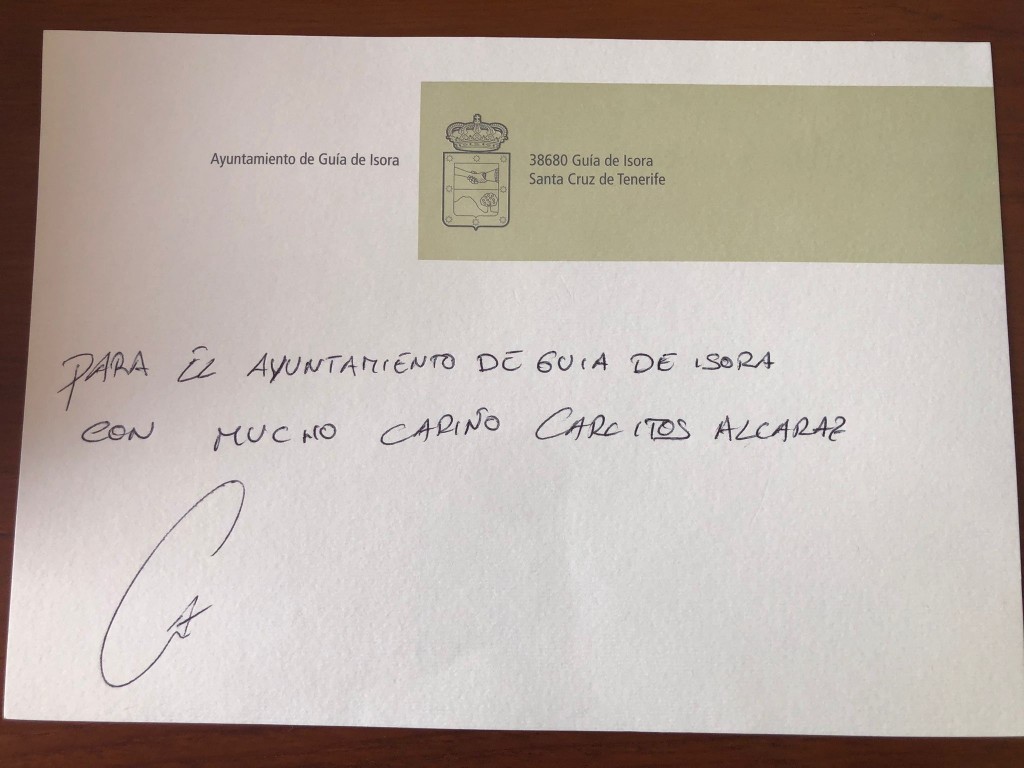 Ayuntamiento de Guía de Isora
38680 Guía de Isora
Santa Cruz de Tenerife
PARA EL AYUNTAMIENTO DE GUIA DE ISORA
CON MUCHO CARIÑO CARLITOS ALCARAZ
CA